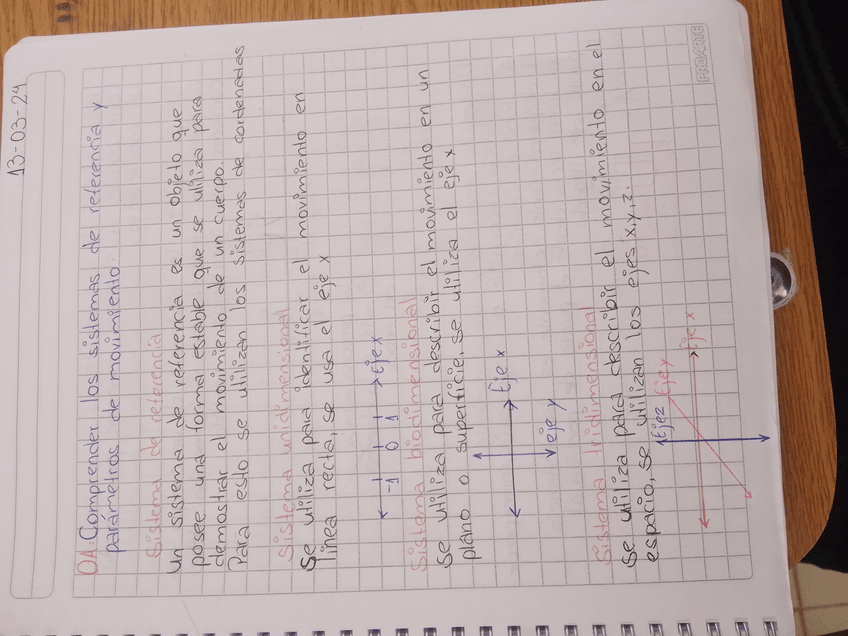 13-03-24
OA: Comprender los sistemas de referencia y
parámetros de movimiento.
Sistema de referencia
Un sistema de referencia es un objeto que
posee una forma estable que se utiliza para
demostrar el movimiento de un cuerpo.
Para esto se utilizan los sistemas de cordenadas
Sistema unidimensional
Se utiliza para identificar el movimiento en
línea recta, se usa el eje x
-1 0 1 Eje x
Sistema biodimensional
Se utiliza para describir el movimiento en un
plano o superficie, se utiliza el eje x
Eje x
eje y
Sistema tridimensional
Se utiliza para describir el movimiento en el
espacio, se utilizan los ejes x,y,z.
Eje z Eje y
Eje x
PROARTE